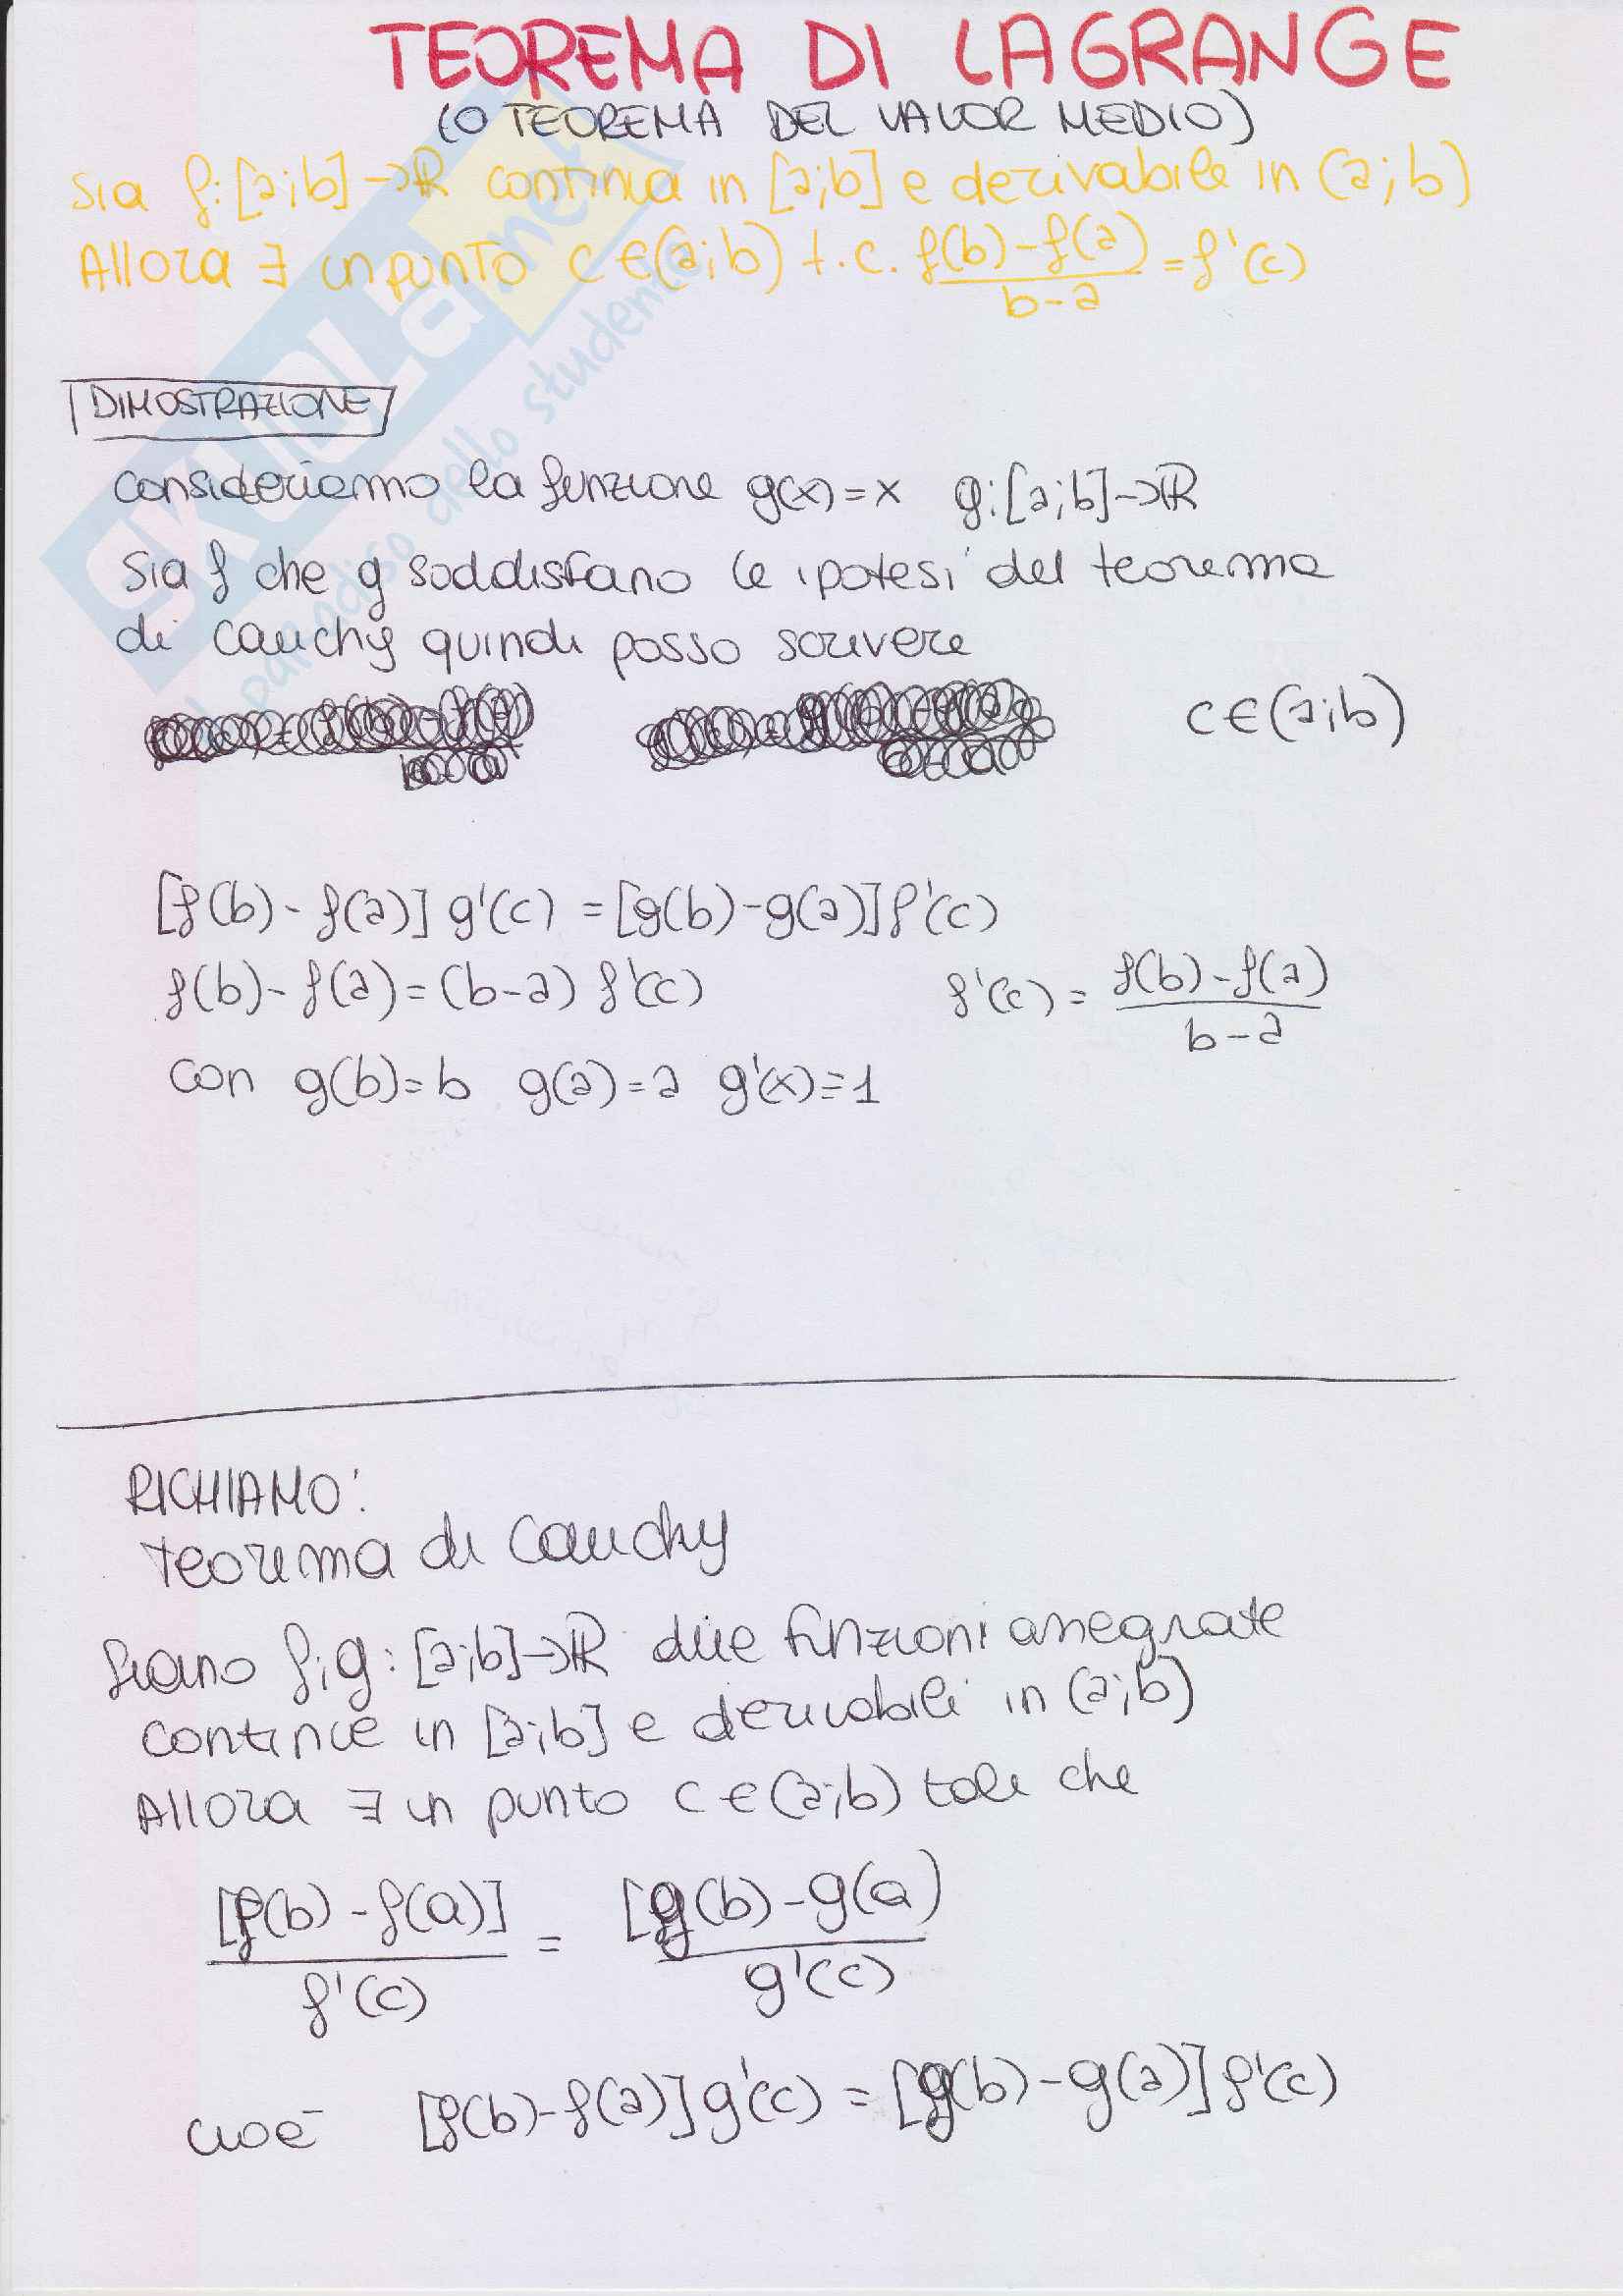 TEOREMA DI LAGRANGE
(O TEOREMA DEL VALOR MEDIO)
Sia f:[a;b]→ℝ continua in [a;b] e derivabile in (a;b)
Allora ∃ un punto c∈(a;b) t.c. f(b)-f(a)/b-a = f'(c)
DIMOSTRAZIONE
Consideriamo la funzione g(x)=x g:[a;b]→ℝ
Sia f che g soddisfano le ipotesi del teorema
di Cauchy quindi posso scrivere
c∈(a;b)
[f(b)-f(a)] g'(c) = [g(b)-g(a)] f'(c)
f(b)-f(a) = (b-a) f'(c) f'(c) = f(b)-f(a)/b-a
con g(b)=b g(a)=a g'(x)=1
RICHIAMO:
Teorema di Cauchy
Siano f;g:[a;b]→ℝ due funzioni assegnate
continue in [a;b] e derivabili in (a;b)
Allora ∃ un punto c∈(a;b) tale che
[f(b)-f(a)]/f'(c) = [g(b)-g(a)/g'(c)
cioè [f(b)-f(a)]g'(c) = [g(b)-g(a)] f'(c)
SKUOLA.net
il paradiso dello studente